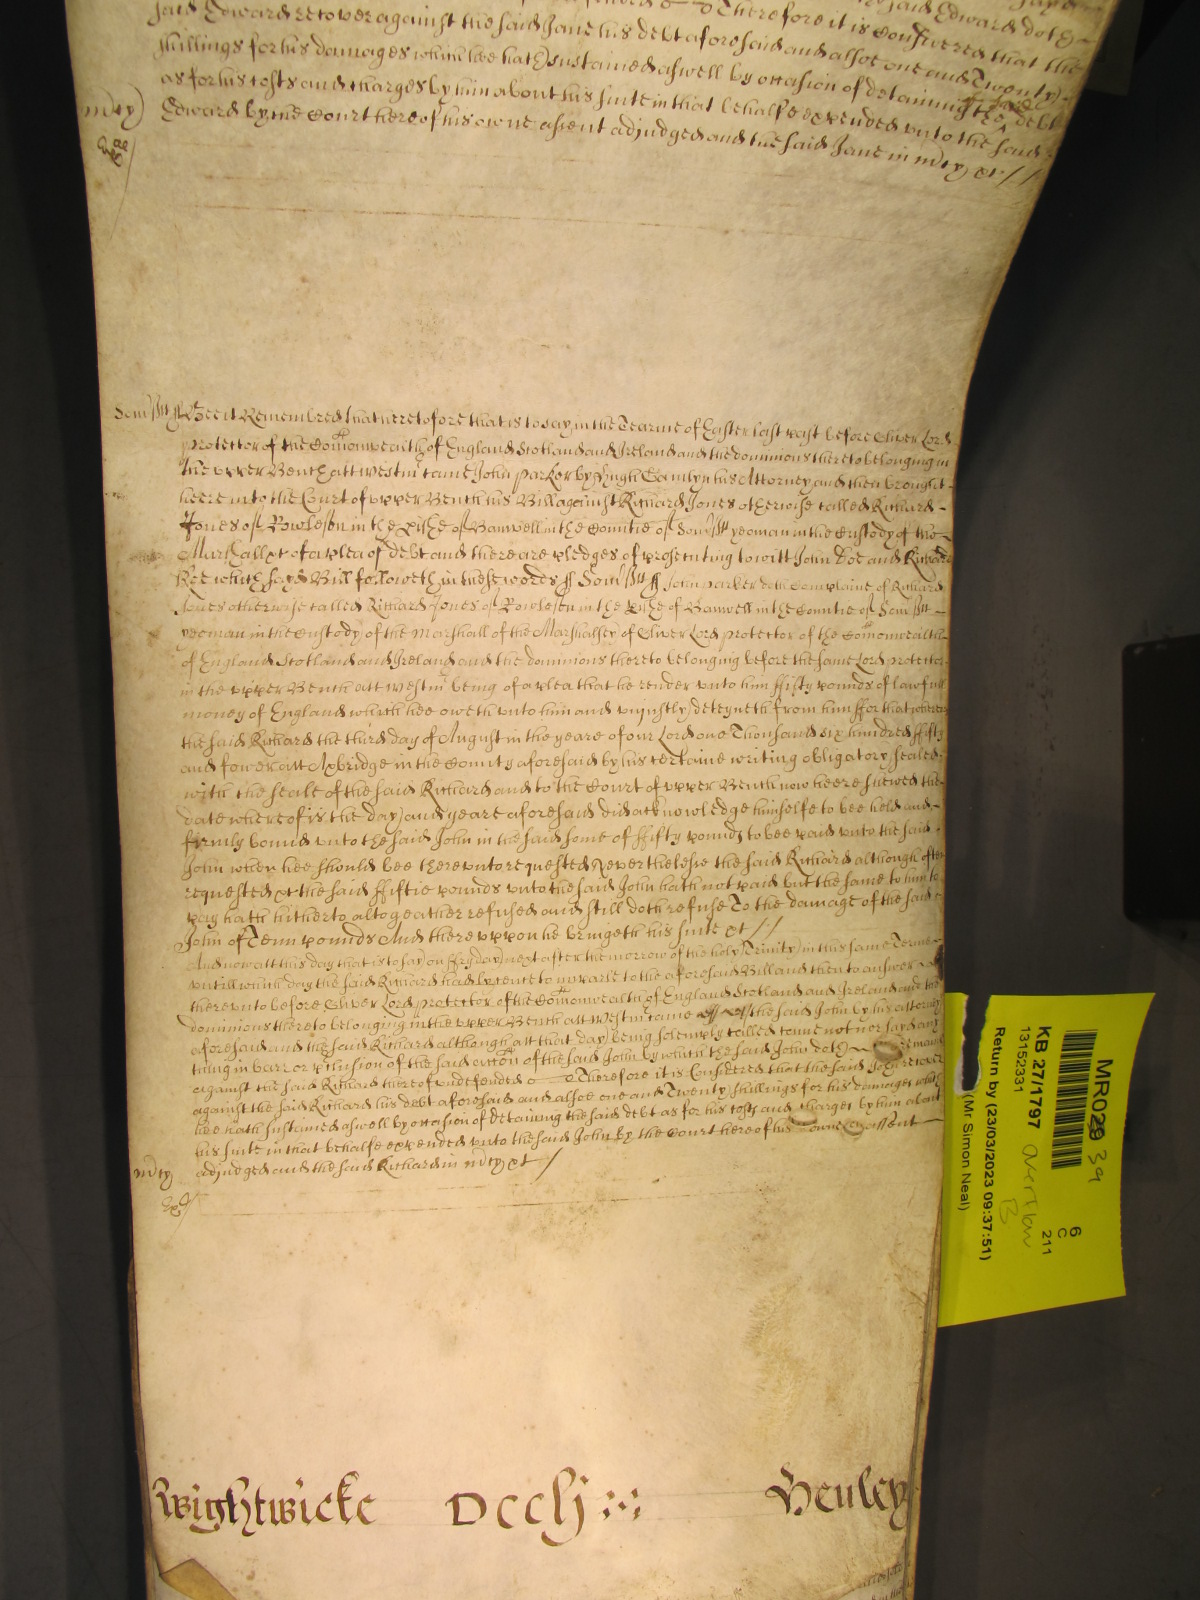 said Edward recover against the said Jane his debt aforesaid and alsoe one and Twenty
shillings for his damages which hee hath sustained aswell by occasion of detaining the said debt
as for his costs and charges by him about his suite in that behalfe expended unto the said
Edward by the Court here of his owne assent adjudged and the said Jane in mcy &c //
mcy)
Som'sett ss Bee it Remembred that heretofore that is to say in the Tearme of Easter last past before Oliver Lord
protector of the Comonwealth of England Scotland and Ireland and the dominions thereto belonging in
the upper Bench att Westm' came John Parker by Hugh his Attorney and then brought
heere into the Court of upper Bench his Bill against Richard Jones otherwise called Richard
Jones of Rowlesen in the p'ishe of Banwell in the Countie of Som'sett yeoman in the Custody of the
Marshall &c of a plea of debt and there are pledges of prosecuting to witt John Doe and Richard
Roe which said Bill followeth in these words ss Som'sett ss John Parker doth Complaine of Richard
Jones otherwise called Richard Jones of Rowlesen in the p'ishe of Banwell in the Countie of Som'sett
yeoman in the Custody of the Marshall of the Marshalsey of Oliver Lord protector of the Comonwealth
of England Scotland and Ireland and the dominions thereto belonging before the same Lord protector
in the upper Bench att Westm' being of a plea that he render unto him ffifty pounds of lawfull
money of England which hee oweth unto him and unjustly deteyneth from him ffor that whereas
the said Richard the third day of August in the yeare of our Lord one Thousand six hundred ffifty
and fower att Axbridge in the County aforesaid by his certaine writing obligatory sealed
with the seale of the said Richard and to the Court of upper Bench now heere shewed the
date whereof is the day and yeare aforesaid did acknowledge himselfe to bee held and
firmly bound unto the said John in the said some of ffifty pounds to bee paid unto the said
John when hee should bee thereunto requested Neverthelesse the said Richard although often
requested &c the said ffiftie pounds unto the said John hath not paid but the same to him to
pay hath hitherto altogeather refused and still doth refuse To the damage of the said
John of Tenn pounds And thereuppon he bringeth his suite &c //
And now att this day that is to say on ffryday next after the morrow of the holy Trinity in this same Terme
untill which day the said Richard had lycence to imparle to the aforesaid Bill and then to answer
thereunto before Oliver Lord protector of the Comonwealth of England Scotland and Ireland and the
dominions thereto belonging in the upper Bench att Westm' came the said John by his attorney
aforesaid and the said Richard although att that day being solemply called came not nor sayd any
thing in barr or p'clusion of the said accon of the said John by which the said John doth remaine
against the said Richard thereof undefended Therefore it is Considered that the said John recover
against the said Richard his debt aforesaid and alsoe one and Twenty shillings for his damages which
hee hath sustained aswell by occasion of detaining the said debt as for his costs and charges by him about
his suite in that behalfe expended unto the said John by the Court here of his owne assent
adjudged and the said Richard in mcy &c /
mcy
Wightwicke DCClj Henley
MR029 39
KB 27/1797
13152331
overflow
B
6
C
211
Return by (23/03/2023 09:37:51)
(Mr Simon Neal)